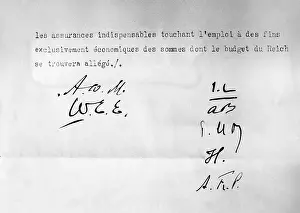 les assurances indispensables touchant l'emploi à des fins
exclusivement économiques des sommes dont le budget du Reich
se trouvera allégé./.
A.W.M.
W.E.E.
H.
A.F.P.